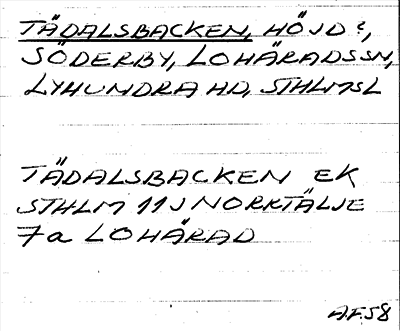 TÄDALSBACKEN, HÖJD?,
SÖDERBY, LOHÄRADSSN,
LYHUNDRA HD, STHLMSL
TÄDALSBACKEN EK
STHLM 11J NORRTÄLJE
7a LOHÄRAD
AF58